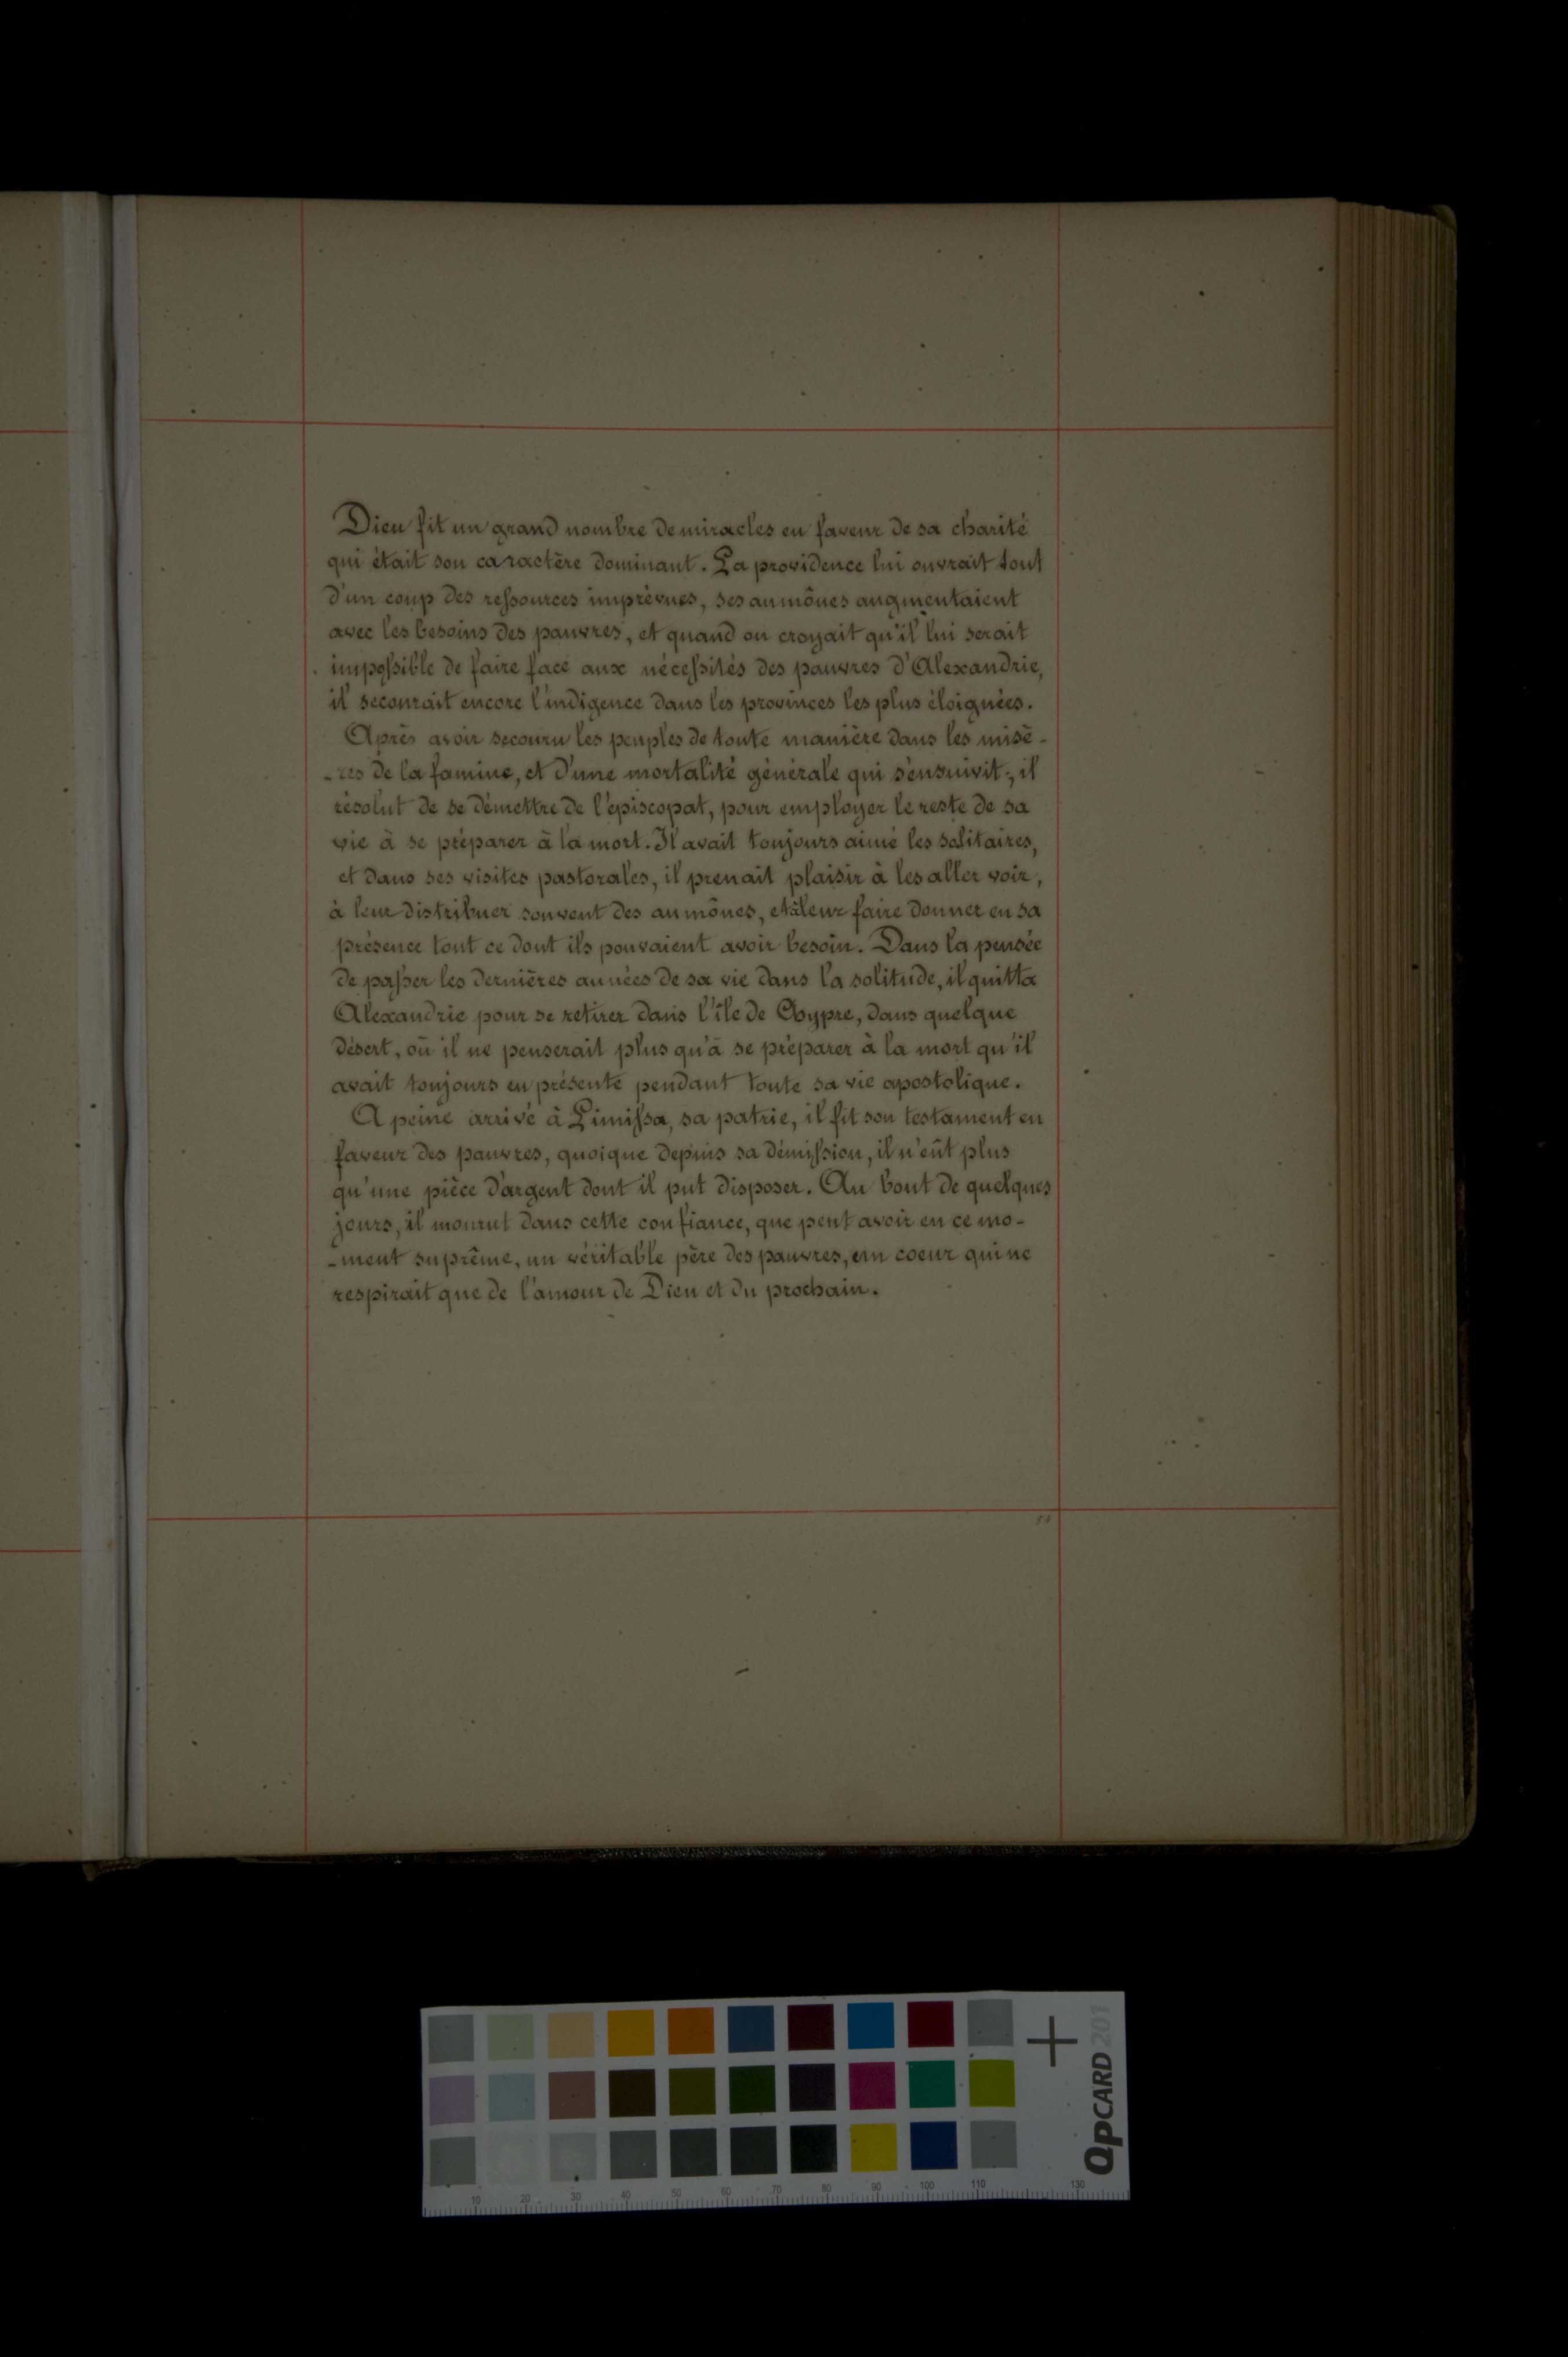 Dieu fit un grand nombre de miracles en faveur de sa charité
qui était son caractère dominant. La providence lui ouvrait tout
d'un coup des ressources imprévues, ses aumônes augmentaient
avec les besoins des pauvres, et quand on croyait qu'il lui serait
impossible de faire face aux nécessités des pauvres d'Alexandrie,
il secourait encore l'indigence dans les provinces les plus éloignées.
Après avoir secouru les peuples de toute manière dans les misè-
-res de la famine, et d'une mortalité générale qui s'ensuivit, il
résolut de se démettre de l'épiscopat, pour employer le reste de sa
vie à se préparer à la mort. Il avait toujours aimé les solitaires,
et dans ses visites pastorales, il prenait plaisir à les aller voir,
à leur distribuer souvent des aumônes, et à leur faire donner en sa
présence tout ce dont ils pouvaient avoir besoin. Dans la pensée
de passer les dernières années de sa vie dans la solitude, il quitta
Alexandrie pour se retirer dans l'île de Chypre, dans quelque
désert, où il ne penserait plus qu'à se préparer à la mort qu'il
avait toujours eu présente pendant toute sa vie apostolique.
A peine arrivé à Limissa, sa patrie, il fit son testament en
faveur des pauvres, quoique depuis sa démission, il n'eût plus
qu'une pièce d'argent dont il put disposer. Au bout de quelques
jours, il mourut dans cette confiance, que peut avoir en ce mo-
-ment suprême, un véritable père des pauvres, un coeur qui ne
respirait que de l'amour de Dieu et du prochain.
QPCARD 201
10 20 30 40 50 60 70 80 90 100 110 130